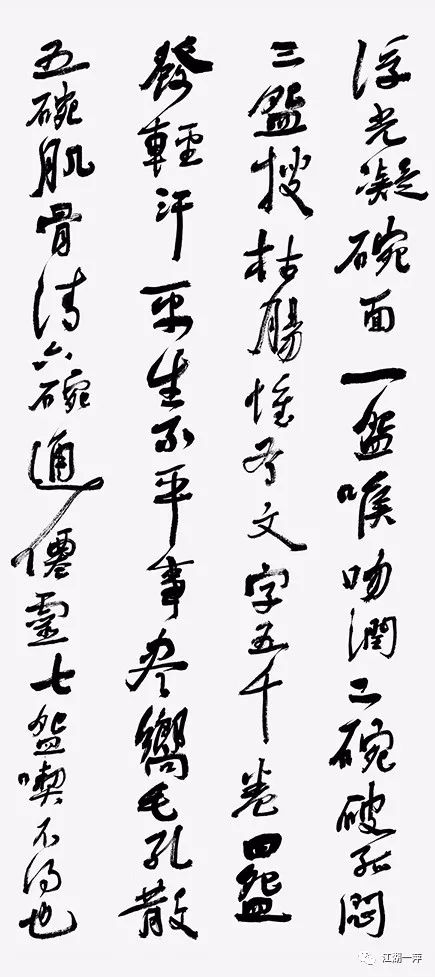 浮光凝碗面一盌喉吻潤二碗破孤悶
三盌搜枯腸惟有文字五千卷四盌
發輕汗平生不平事盡嚮毛孔散
五碗肌骨清六碗通僊靈七盌喫不得也
江湖一萍